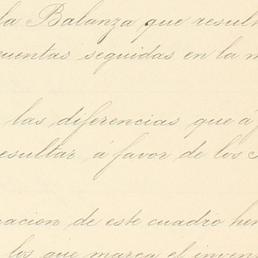 la Balanza que result
cuentas seguidas en la m
las diferencias que á
resultar á favor de los
racion de este cuadro hem
los que marca el inven